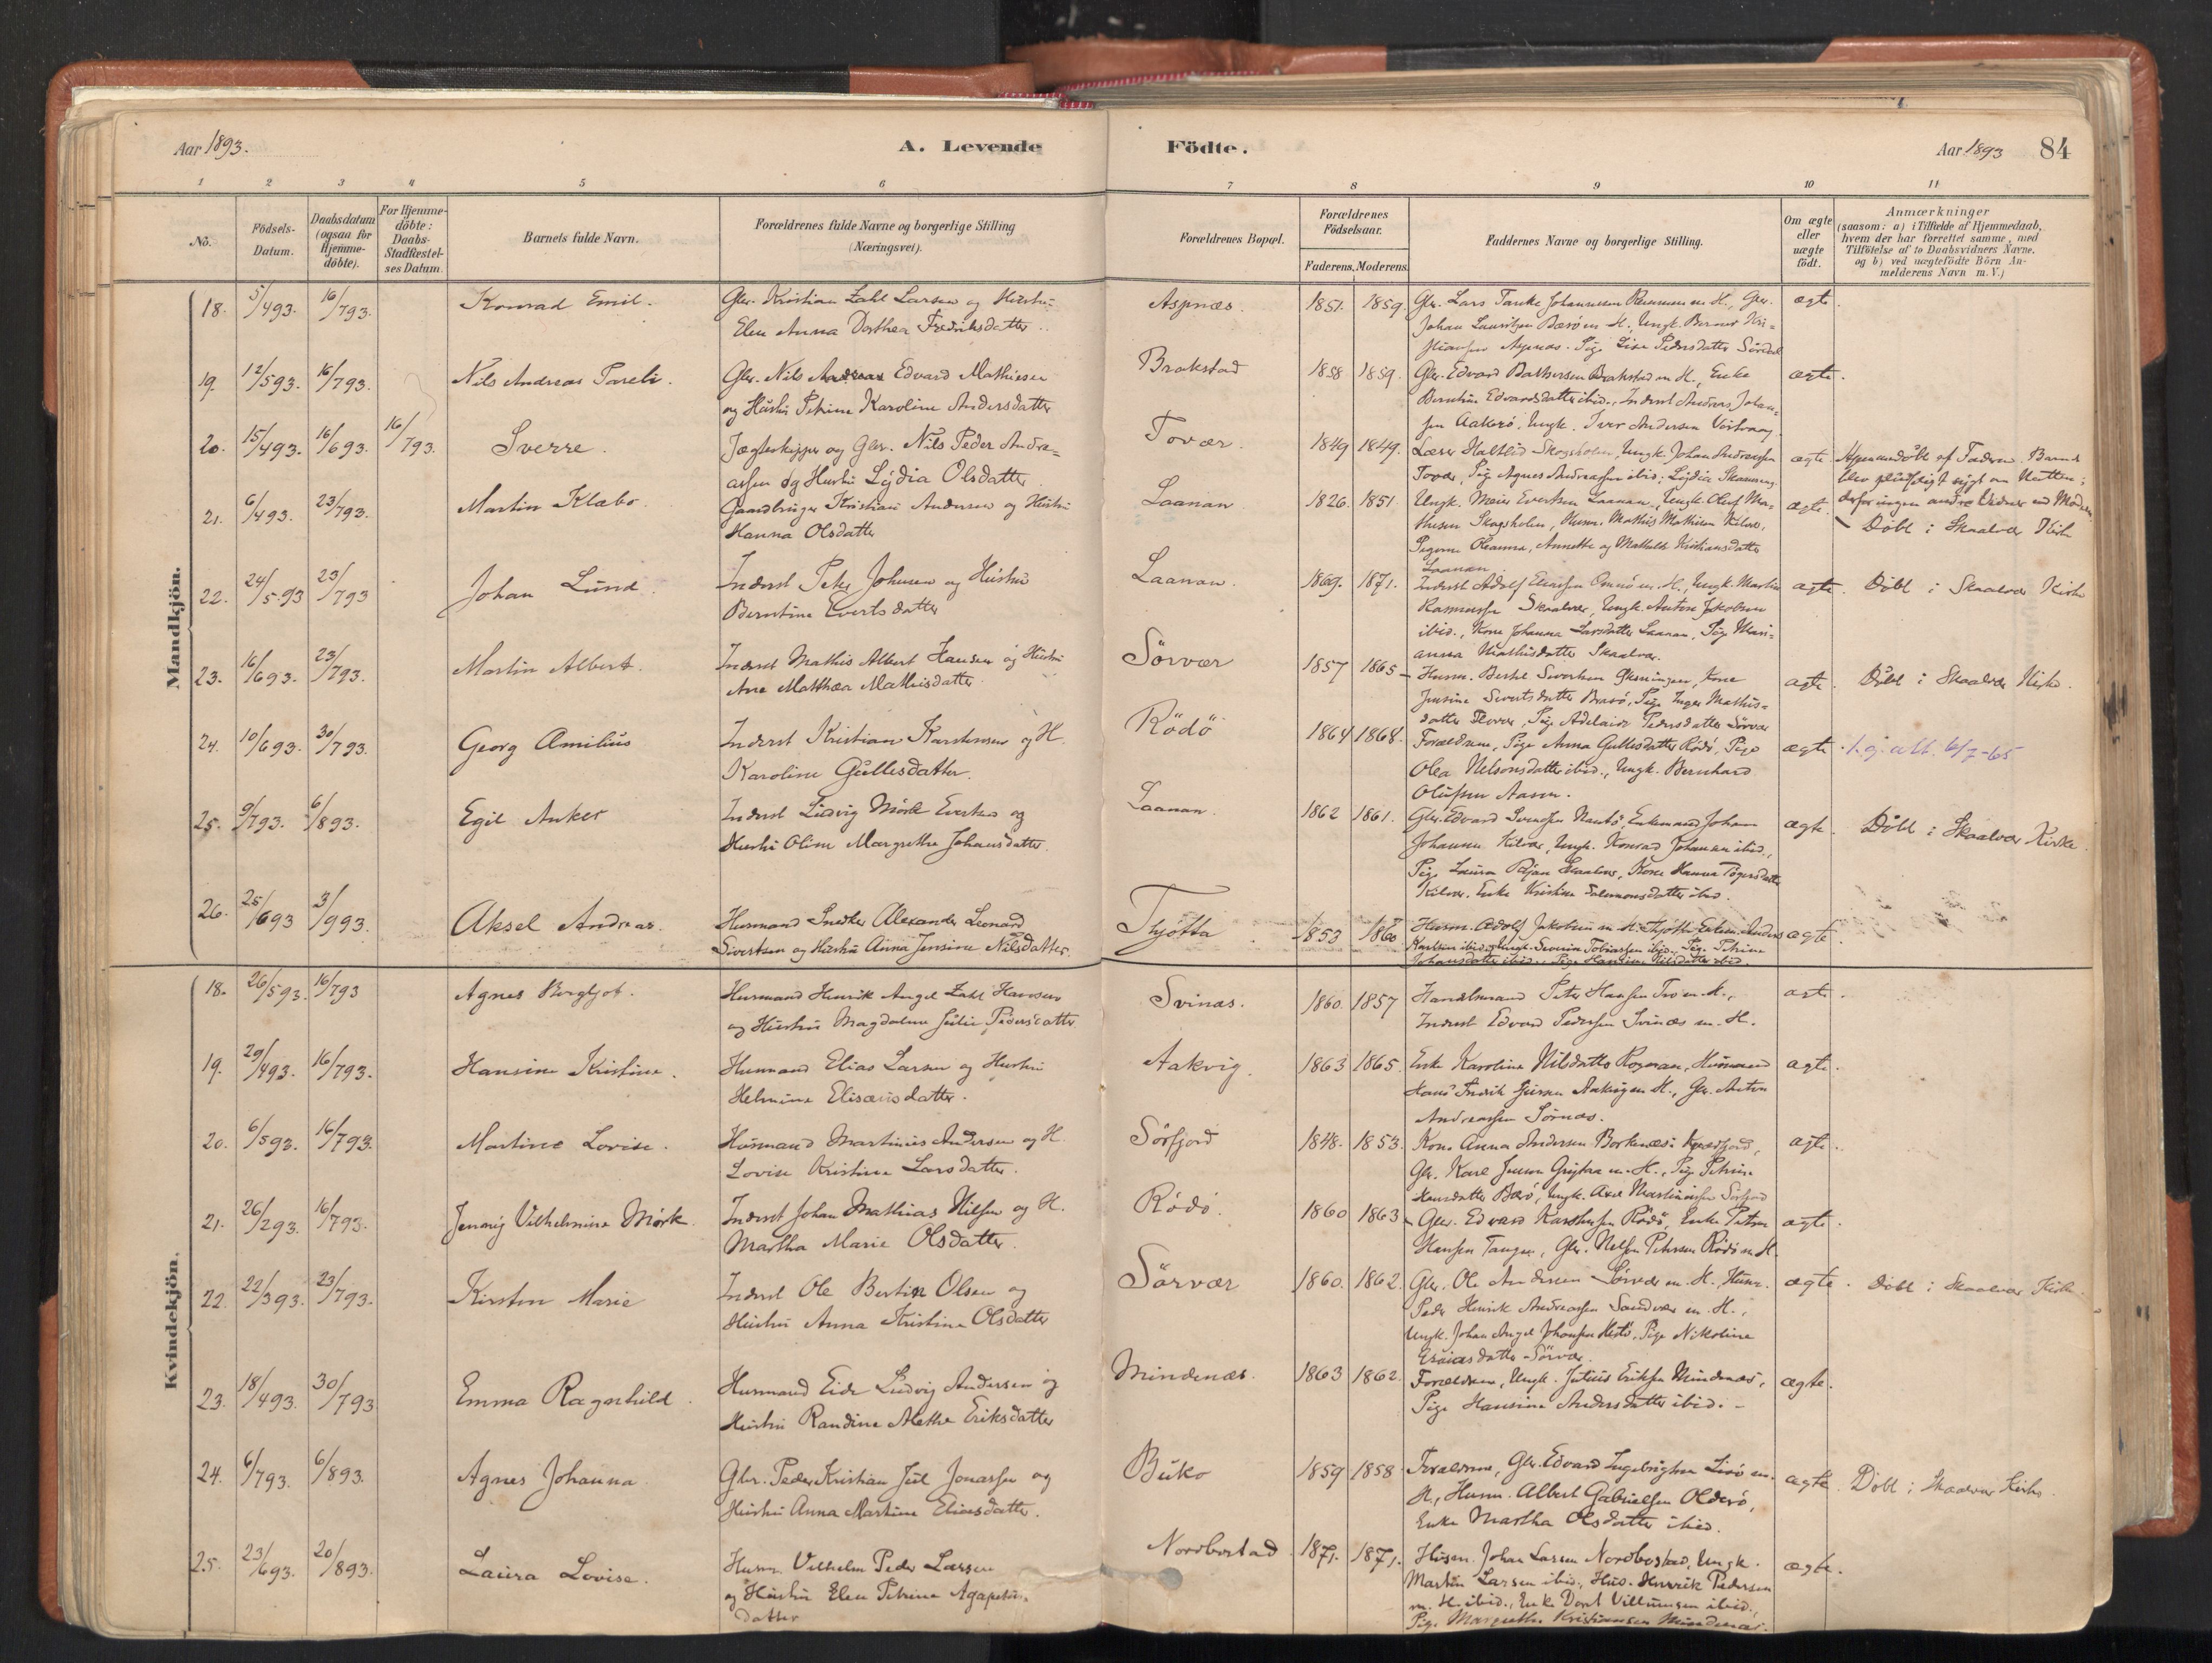 Aar 1893.
A. Levende
Födte.
Aar 1893
84
1 2 3 4 5 6 7 8 9 10 11
No.
Födsels-
Datum.
Daabsdatum
(ogsaa for
Hjemme-
döbte).
For Hjemme-
döbte:
Daabs-
Stadfestel-
ses Datum.
Barnets fulde Navn.
Forældrenes fulde Navne og borgerlige Stilling
(Næringsvei).
Forældrenes Bopæl.
Forældrenes
Födselsaar.
Faderens. Moderens.
Faddernes Navne og borgerlige Stilling.
Om ægte
eller
uægte
födt.
Anmærkninger
(saasom: a) i Tilfælde af Hjemmedaab,
hvem der har forrettet samme, med
Tilföielse af to Daabsvidners Navne.
og b) ved uægtefödte Börn An-
melderens Navn m. V.)
Mandkjön.
18. 5/493. 16/793. Konrad Emil.
Gbr. Kristian Zahl Larsen og Hustru
Elen Anna Dorthea Fredriksdatter
Aspnæs. 1851. 1859. ægte.
Gbr. Lars Tanke Johannesen m. H., Gbr.
Johan Lauritzen Bærö m. H., Ungk. Berner Kri-
stiansen Aspnæs. Pige Lise Pedersdatter
19. 12/593. 16/793. Nils Andreas Pareli.
Gbr. Nils Edvard Mathiesen
og Hustru Petrine Karoline Andersdatter
Brakstad 1858 1859. ægte.
Gbr. Edvard Brakstad m. H., Enke
Edvardsdatter ibid., Inderst Andreas Johan-
sen Aakerö, Ungk. Iver Andersen
20. 15/493. 16/693. 16/793. Sverre.
Jægteskipper og Gbr. Nils Peder Andre-
assen og Hustru Lydia Olsdatter
Tovær. 1849 1849. ægte.
Skogsholm, Ungk. Johan Andreassen
Tovær, Pige Agnes Andreassen ibid., Lydia
Hjemmedöbt af Faderen. Barnet
blev pludseligt sygt om Natten;
derfor ingen andre Vidner end Moderen
21. 6/493. 23/793. Martin Klæbo.
Gaardbruger Kristian Andersen og Hustru
Hanna Olsdatter
Laanan 1826. 1851. ægte.
Ungk. Meier Evertsen Laanan, Ungk. Oluf Ma-
thisen Skogsholm, Husm. Mathis Mathisen Kilvær,
Pigerne Oleanna, Annette og Mathilde Kristiansdatter
Laanan.
Döbt i Skaalvær Kirke
22. 24/5-93 23/793 Johan Lund.
Inderst Peter Johnsen og Hustru
Berntine Evertsdatter
Laanan. 1869. 1871. ægte.
Inderst Adolf Eliassen m. H., Ungk. Martin
Rasmussen Skaalvær, Ungk. Anton Jakobsen
ibid., Kone Johanna Larsdatter Laanan, Pige Mari-
anna Mathisdatter Skaalvær.
Döbt i Skaalvær Kirke
23. 16/693. 23/793. Martin Albert.
Inderst Mathis Albert Hansen og Hustru
Ane Matthea Mathisdatter.
Sörvær 1857 1865 ægte.
Husm. Bertel Sivertsen, Kone
Jensine Sivertsdatter, Pige Inger Mathis-
datter, Pige Adelaide Pedersdatter Sörvær
Döbt i Skaalvær Kirke.
24. 10/693. 30/793. Georg Æmilius
Inderst Kristian Karstensen og H.
Karoline Gullesdatter.
Rödö 1864 1868. ægte.
Forældrene, Pige Anna Gullesdatter Rödö, Pige
Olea Nelsonsdatter ibid., Ungk. Bernhard
Olufsen Aasen.
f. g. att. 6/7-65
25. 9/793. 6/893. Egil Anker
Inderst Ludvig Mörk Evertsen og
Hustru Oline Margrethe Johansdatter.
Laanan. 1862 1861. ægte.
Gbr. Edvard Svendsen, Enkemand Johan
Johannesen Kilvær, Ungk. Konrad Johansen ibid.,
Pige Laura Skaalvær, Kone Hanna
Kilvær. Enke Kristine Salomonsdatter ibid.
Döbt i Skaalvær Kirke.
26. 25/693 3/993. Aksel Andreas.
Husmand Snedker Alexander Leonard
Sivertsen og Hustru Anna Jensine Nilsdatter.
Thjötta. 1853 1860 ægte.
Husm. Adolf Jakobsen m. H. Thjötta
Karlsen ibid. Ungk. Severin Tobiassen ibid. Pige Petrine
Johansdatter ibid., Pige Hansine Nilsdatter ibid.
Kvindekjön.
18. 26/593. 16/793 Agnes Bergljot.
Husmand Henrik Angel Zahl Hansen
og Hustru Magdalene Julie Pedersdatter
Svinæs. 1860. 1857 ægte.
Handelsmand Peter Hansen Tro m. H.,
Inderst Edvard Pedersen Svinæs m. H.
19. 29/493. 16/793. Hansine Kristine.
Husmand Elias Larsen og Hustru
Helmine Elisæusdatter.
Aakvig. 1863 1865. ægte.
Enke Karoline Nilsdatter, Husmand
Hans Fredrik Aakvig m. H., Gbr. Anton
Andreassen Sörnæs.
20. 6/593. 16/793. Martine Lovise.
Husmand Martinus Andersen og H.
Lovise Kristine Larsdatter.
Sörfjord 1848. 1853. ægte.
Kone Anna Andersen Borknæs i,
Gbr. Karl Jensen m. H., Pige Petrine
Hansdatter Bærö, Ungk. Axel Martinussen Sörfjord
21. 26/293. 16/793. Jenny Vilhelmine Mörk.
Inderst Johan Mathias Nilsen og H.
Martha Marie Olsdatter.
Rödö. 1860 1863 ægte.
Gbr. Edvard Karstensen Rödö, Enke Petra
Hansen Tangen, Gbr. Nelson Petersen Rödö m. H.
22. 22/393. 23/793. Kirsten Marie
Inderst Ole Bertin Olsen og
Hustru Anna Kristine Olsdatter
Sörvær 1860. 1862. ægte.
Gbr. Ole Andersen Sörvær m. H., Husm.
Peder Henrik Andreassen Sandvær m. H.,
Ungk. Johan Angel Johansen, Pige Nikoline
Esaiasdatter Sörvær.
Döbt i Skaalvær Kirke.
23. 18/493. 30/793 Emma Ragnhild.
Husmand Eide Ludvig Andersen og
Hustru Randine Methe Eriksdatter
Mindenæs. 1863 1862. ægte.
Forældrene, Ungk. Julius Eriksen Mindenæs,
Pige Hansine Andersdatter ibid.
24. 6/793. 6/893. Agnes Johanna
Gbr. Peder Kristian Juul Jonassen og
Hustru Anna Martine Eliasdatter.
Buko 1859 1858. ægte.
Forældrene, Gbr. Edvard Ingebrigtsen m.
H., Husm. Albert Gabrielsen Olderö,
Enke Martha Olsdatter ibid.
Döbt i Skaalvær Kirke.
25. 23/693. 20/893. Laura Lovise.
Husm. Vilhelm Peder Larsen
og Hustru Elen Petrine Agapetus-
datter
Nordbostad 1871. 1871. ægte.
Husm. Johan Larsen Nordbostad, Ungk.
Martin Larsen ibid., Hus. Henrik Pedersen
m. H. ibid., Enke Dort Villumsen ibid.,
Pige Margrethe Kristiansen Mindenæs.